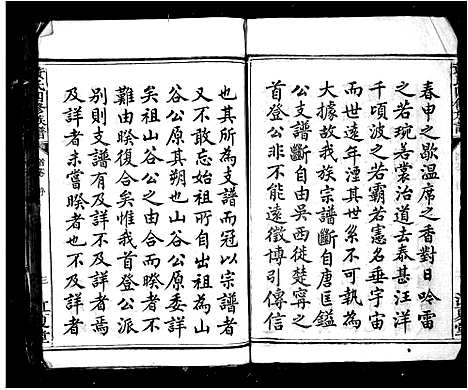 春申之歇温席之香對日哈雷
之若琬若瓊治道去泰甚汪洋
千頃波之若霸若憲名垂宇宙
而世遠年湮其世系不可執為
大據故我族宗譜斷自唐匡鎰
公支譜斷自由吳西徙楚寧之
首登公非不能遠徵博引傳信
也其所為支譜而冠以宗譜者
又不敢忘始祖所自出祖為山
谷公原其朔也山谷公原委詳
矣祖山谷公之由合而暌者不
難由暌復合矣惟我首登公派
別則支譜有及詳不及詳者焉
及詳者未嘗暌者也不及詳者
三
江夏堂